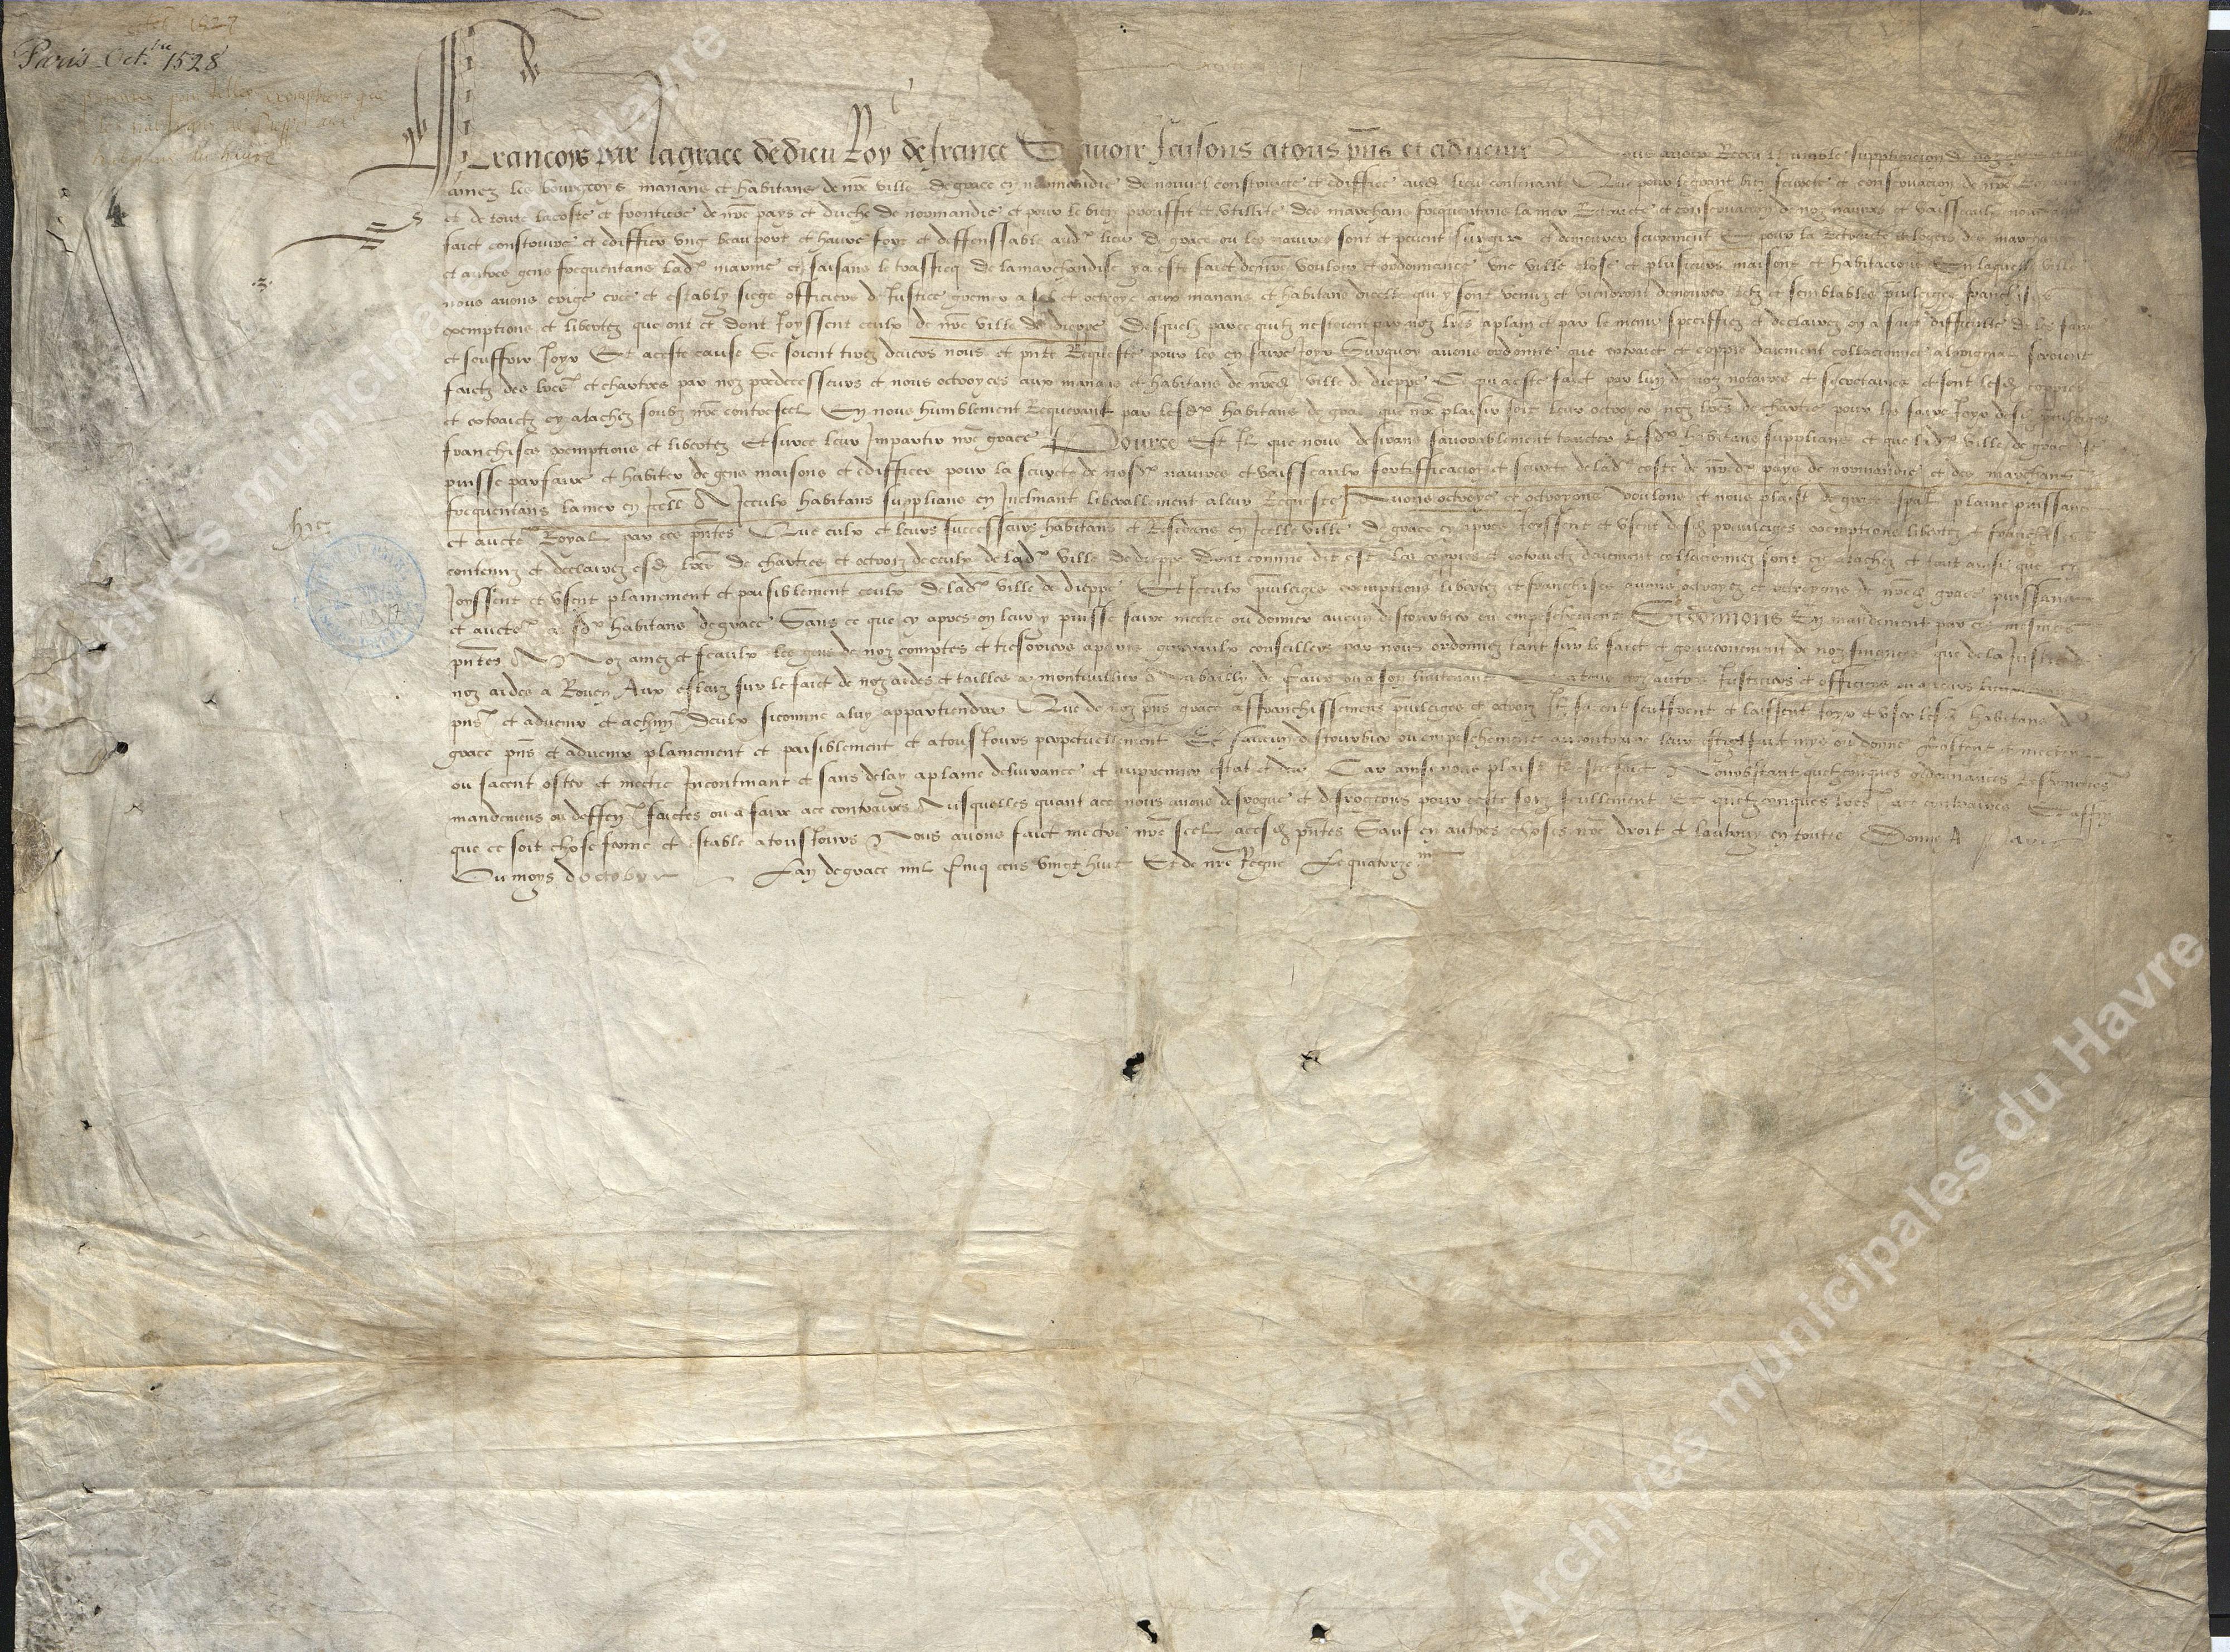 1527
Paris Oct.bre 1528
4
hic
Francoys par la grace de dieu Roy de france Scavoir faisons a tous pñs et advenir Nous avoir Receu lhumble supplicacion de noz chers et
amez les bourgeoys manans et habitans de nr̃e ville de grace en normandie de nouvel construicte et ediffiee aud lieu contenant Que pour le grant bien seurete et conservacion de nr̃e Royaume
et de toute la coste et frontiere de nr̃e pays et duche de normandie et pour le bien prouffit et utillite des marchans frequentans la mer Retraicte et conservacion de noz navires et vaisseaulx nous avons
faict construire et ediffier ung beau port et havre fort et deffensable aud lieu de grace ou les navires sont et peuent surgir et demeurer seurement Et pour la Retraicte et logeis des marchans
et autres gens frequentans lad marine et faisans le traffieq de la marchandise y a este faict de nr̃e vouloir et ordonnance une ville close et plusieurs maisons et habitacions En laquelle ville
nous avons erige cree et estably siege officiers de Justice grenier a sel et octroye aux manans et habitans dicelle qui y sont venuz et viendront demourer telz et semblables privileiges franchises
exemptions et libertez que ont et dont Joyssent ceulx de nr̃e ville de dieppe Desquelz parce quilz nestoient par noz lr̃es aplain et par le menu speciffiez et declairez on a faict difficulte de les faire
et souffrir Joyr Et a ceste cause Se soient tirez devers nous et pñte Requeste pour les en faire Joyr Surquoy avons ordonne que extraict et coppie deuement collacionnee a loriginal seroient
faictz des lr̃es et chartres par noz predecesseurs et nous octroyees aux manans et habitans de nr̃ed ville de dieppe Ce qui a este faict par lun de noz notaires et secretaires et sont lesd coppies
et extraictz cy atachez soubz nr̃e contrescel En nous humblement Requerant par lesd habitans de grace que nr̃e plaisir soit leur octroyer noz lr̃es de chartre pour les faire Joyr desd privileiges
franchises exemptions et libertez Et sur ce leur Impartir nr̃e grace Pource Est Il que nous desirans favorablement traicter lesd habitans supplians et que lad ville de grace se
puisse parfaire et habiter de gens maisons et ediffices pour la seurete de nosd navires et vaisseaulx fortifficacion et seurte de lad coste de nr̃ed pays de normandie et des marchans
frequentans la mer en Icelle A Iceulx habitans supplians en Inclinant liberallement a leur Requeste Avons octroye et octroyons voulons et nous plaist de grace spal plaine puissance
et aucte Royal par ces pñtes Que eulx et leurs successeurs habitans et Residens en Icelle ville de grace cy apres Joyssent et usent desd privileiges exemptions libertez et franchises
contenuz et declairez esd lr̃es de chartres et octroiz de ceulx de lad ville de dieppe dont comme dit est les coppies et extraictz deuement collacionnez sont cy atachez et tout ainsi que en
Joyssent et usent plainement et paisiblement ceulx de lad ville de dieppe Et Iceulx privileiges exemptions libertez et franchises avons octroyez et octroyons de nr̃ed grace puissance
et aucte a sd habitans de grace Sans ce que cy apres on leur y puisse faire mectre ou donner aucun destourbier ou empeschement Si donnons En mandement par ces mesmes
pñtes A Noz amez et feaulx les gens de noz comptes et tresoriers a paris generaulx conseillers par nous ordonnez tant sur le faict et gouvernement de noz finances que de la Justice de
noz aides a Rouen Aux esleuz sur le faict de noz aides et tailles a montiviller Au bailly de Caux ou a son lieutenant Et a tous noz autres Justiciers et officiers ou a leurs lieuxtenans
pñs et advenir et a chũn deulx si comme a luy appartiendra Que de noz pñs grace affranchissement privileiges et octroiz Ilz facent seuffrent et laissent Joyr et user lesd habitans de
grace pñs et advenir plainement et paisiblement et a tousjours perpetuellement Et si aucun destourbier ou empeschement au contraire leur estoit faict mys ou donne lostent et mectent
ou facent oster et mectre Incontinant et sans delay a plaine delivrance et au premier estat et deu Car ainsi nous plaist Il estre faict Nonobstant quelzconques ordonnances Restrinctions
mandemens ou deffen faictes ou a faire a ce contraires Ausquelles quant a ce nous avons desrogue et desrogeons pour ceste foiz seullement Et quelzconques lr̃es a ce contraires Et affin
que ce soit chose ferme et estable a tousjours Nous avons faict mectre nr̃e scel a cesd pñtes Sauf en autres choses nr̃e droit et lautruy en toutes Donne A Paris
Ou moys doctobre Lan de grace mil cinq cens vingt huit Et de nr̃e Regne Le quatorze me
Archives municipales du Havre
Archives municipales du Havre